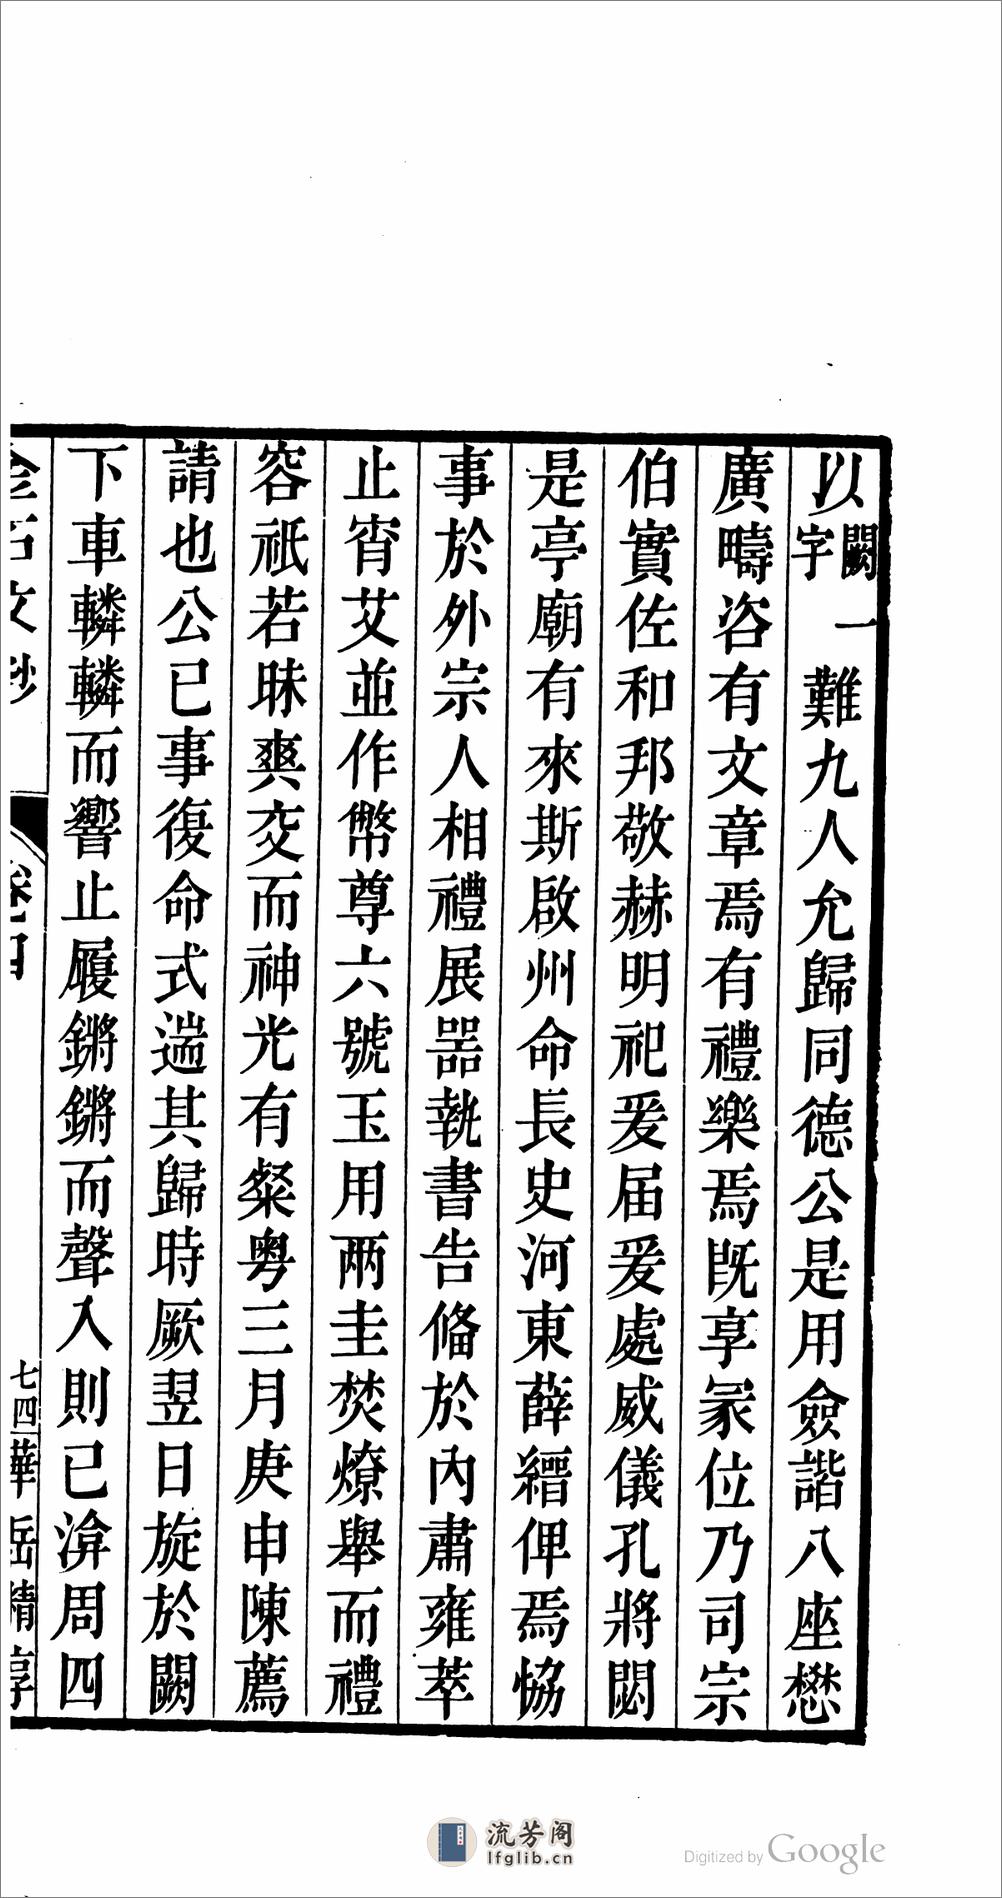 以闕一字難九人允歸同德公是用僉諧八座懋
廣疇咨有文章焉有禮樂焉旣享冢位乃司宗
伯實佐和邦敬赫明祀爰届爰處威儀孔將閟
是亭廟有來斯啟州命長史河東薛縉俾焉恊
事於外宗人相禮展器執書告俻於內肅雍萃
止宵艾並作幣尊六號玉用兩圭焚燎舉而禮
容祇若昧爽交而神光有粲粤三月庚申陳薦
請也公已事復命式遄其歸時厥翌日旋於闕
下車轔轔而響止履鏘鏘而聲入則已渰周四
金石文鈔
卷四
七四
華岳精享
流芳阁
lfglib.cn
Digitized by Google